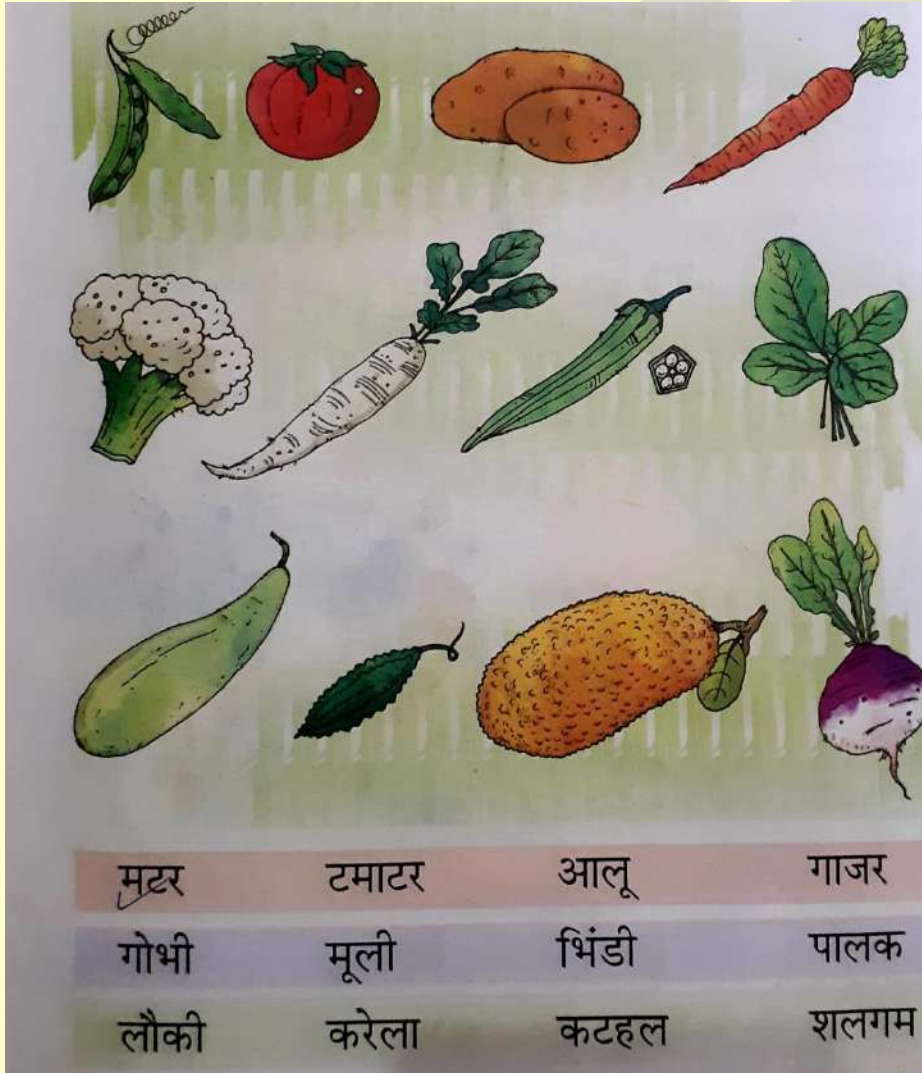 मटर टमाटर आलू गाजर
गोभी मूली भिंडी पालक
लौकी करेला कटहल शलगम